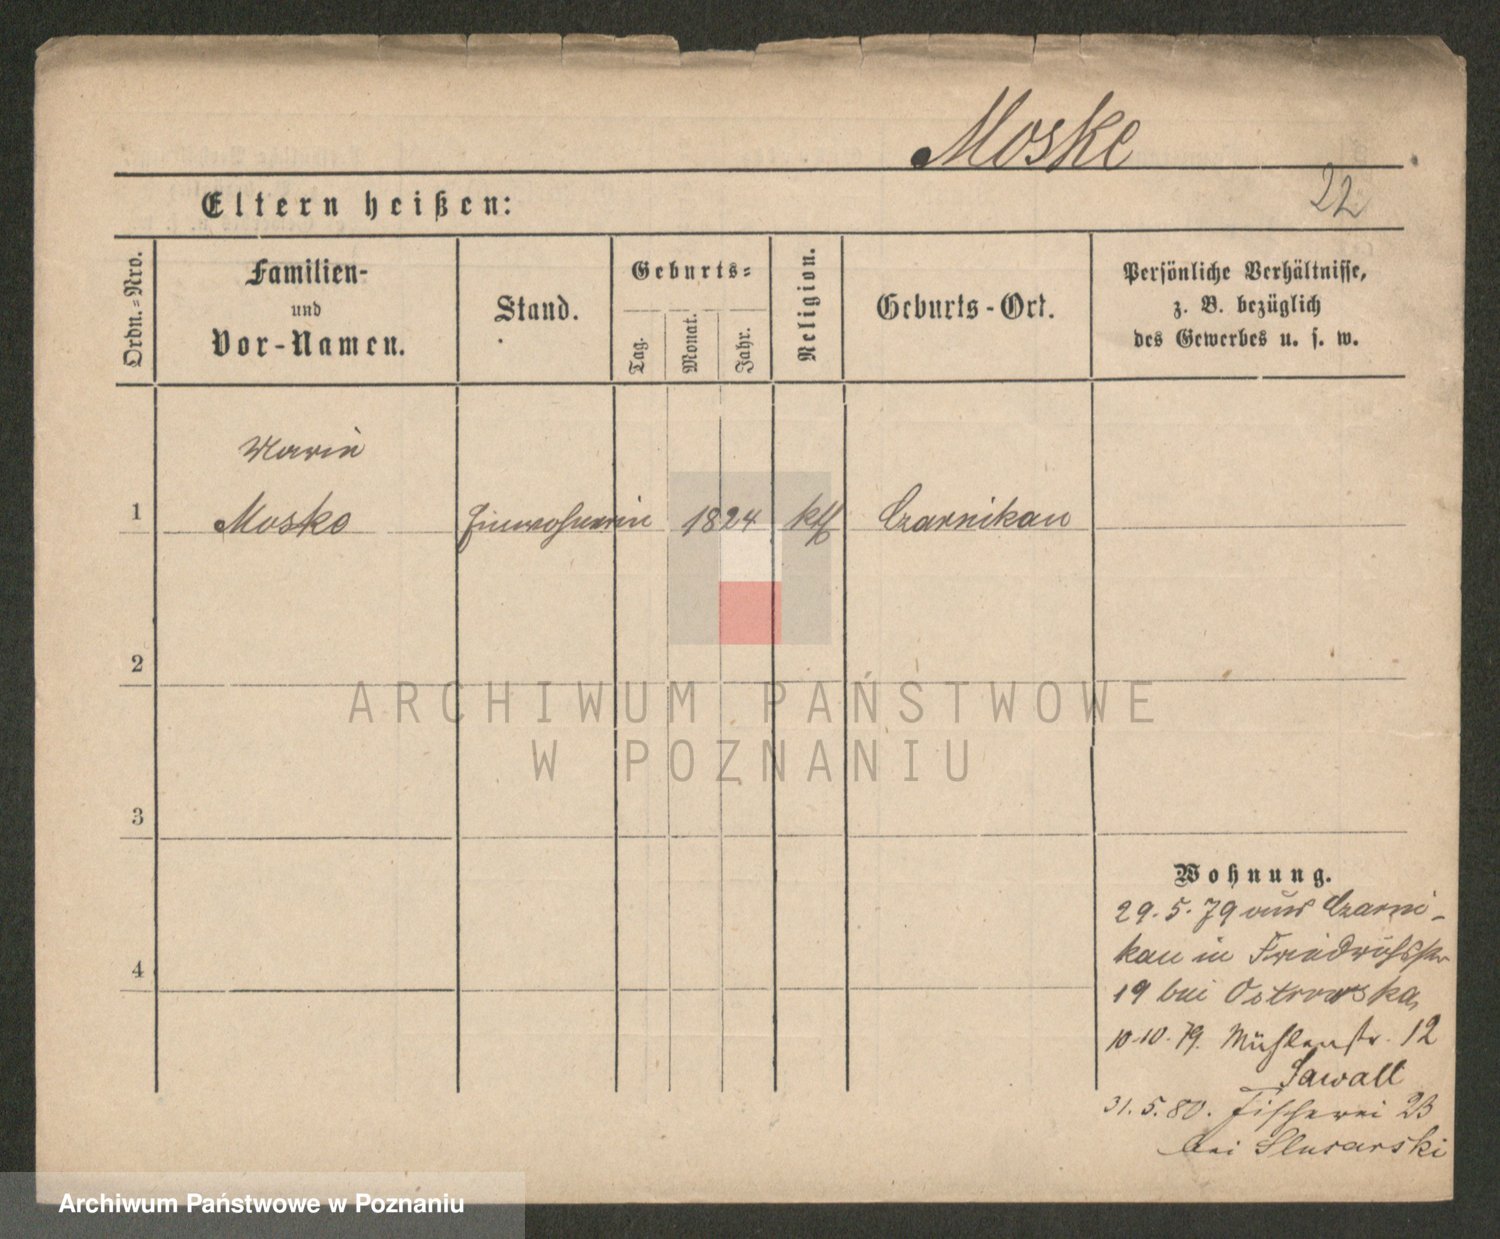 Moske
Eltern heißen:
22
Ordn.-Nro.
Familien-
und
Vor-Namen.
Stand.
Geburts-
Tag.
Monat.
Jahr.
Religion.
Geburts-Ort.
Persönliche Verhältnisse,
z. B. bezüglich
des Gewerbes u. s. w.
Marie
1 Moske Einwohnerin 1824 kth Czarnikau
2
ARCHIWUM PAŃSTWOWE
W POZNANIU
3
Wohnung.
29.5.79 aus Czarni-
kau in Friedrichsstr
4
19 bei Ostrowska,
10.10.79. Mühlenstr. 12
Sawall
31.5.80. Fischerei 23
bei Slusarski
Archiwum Państwowe w Poznaniu